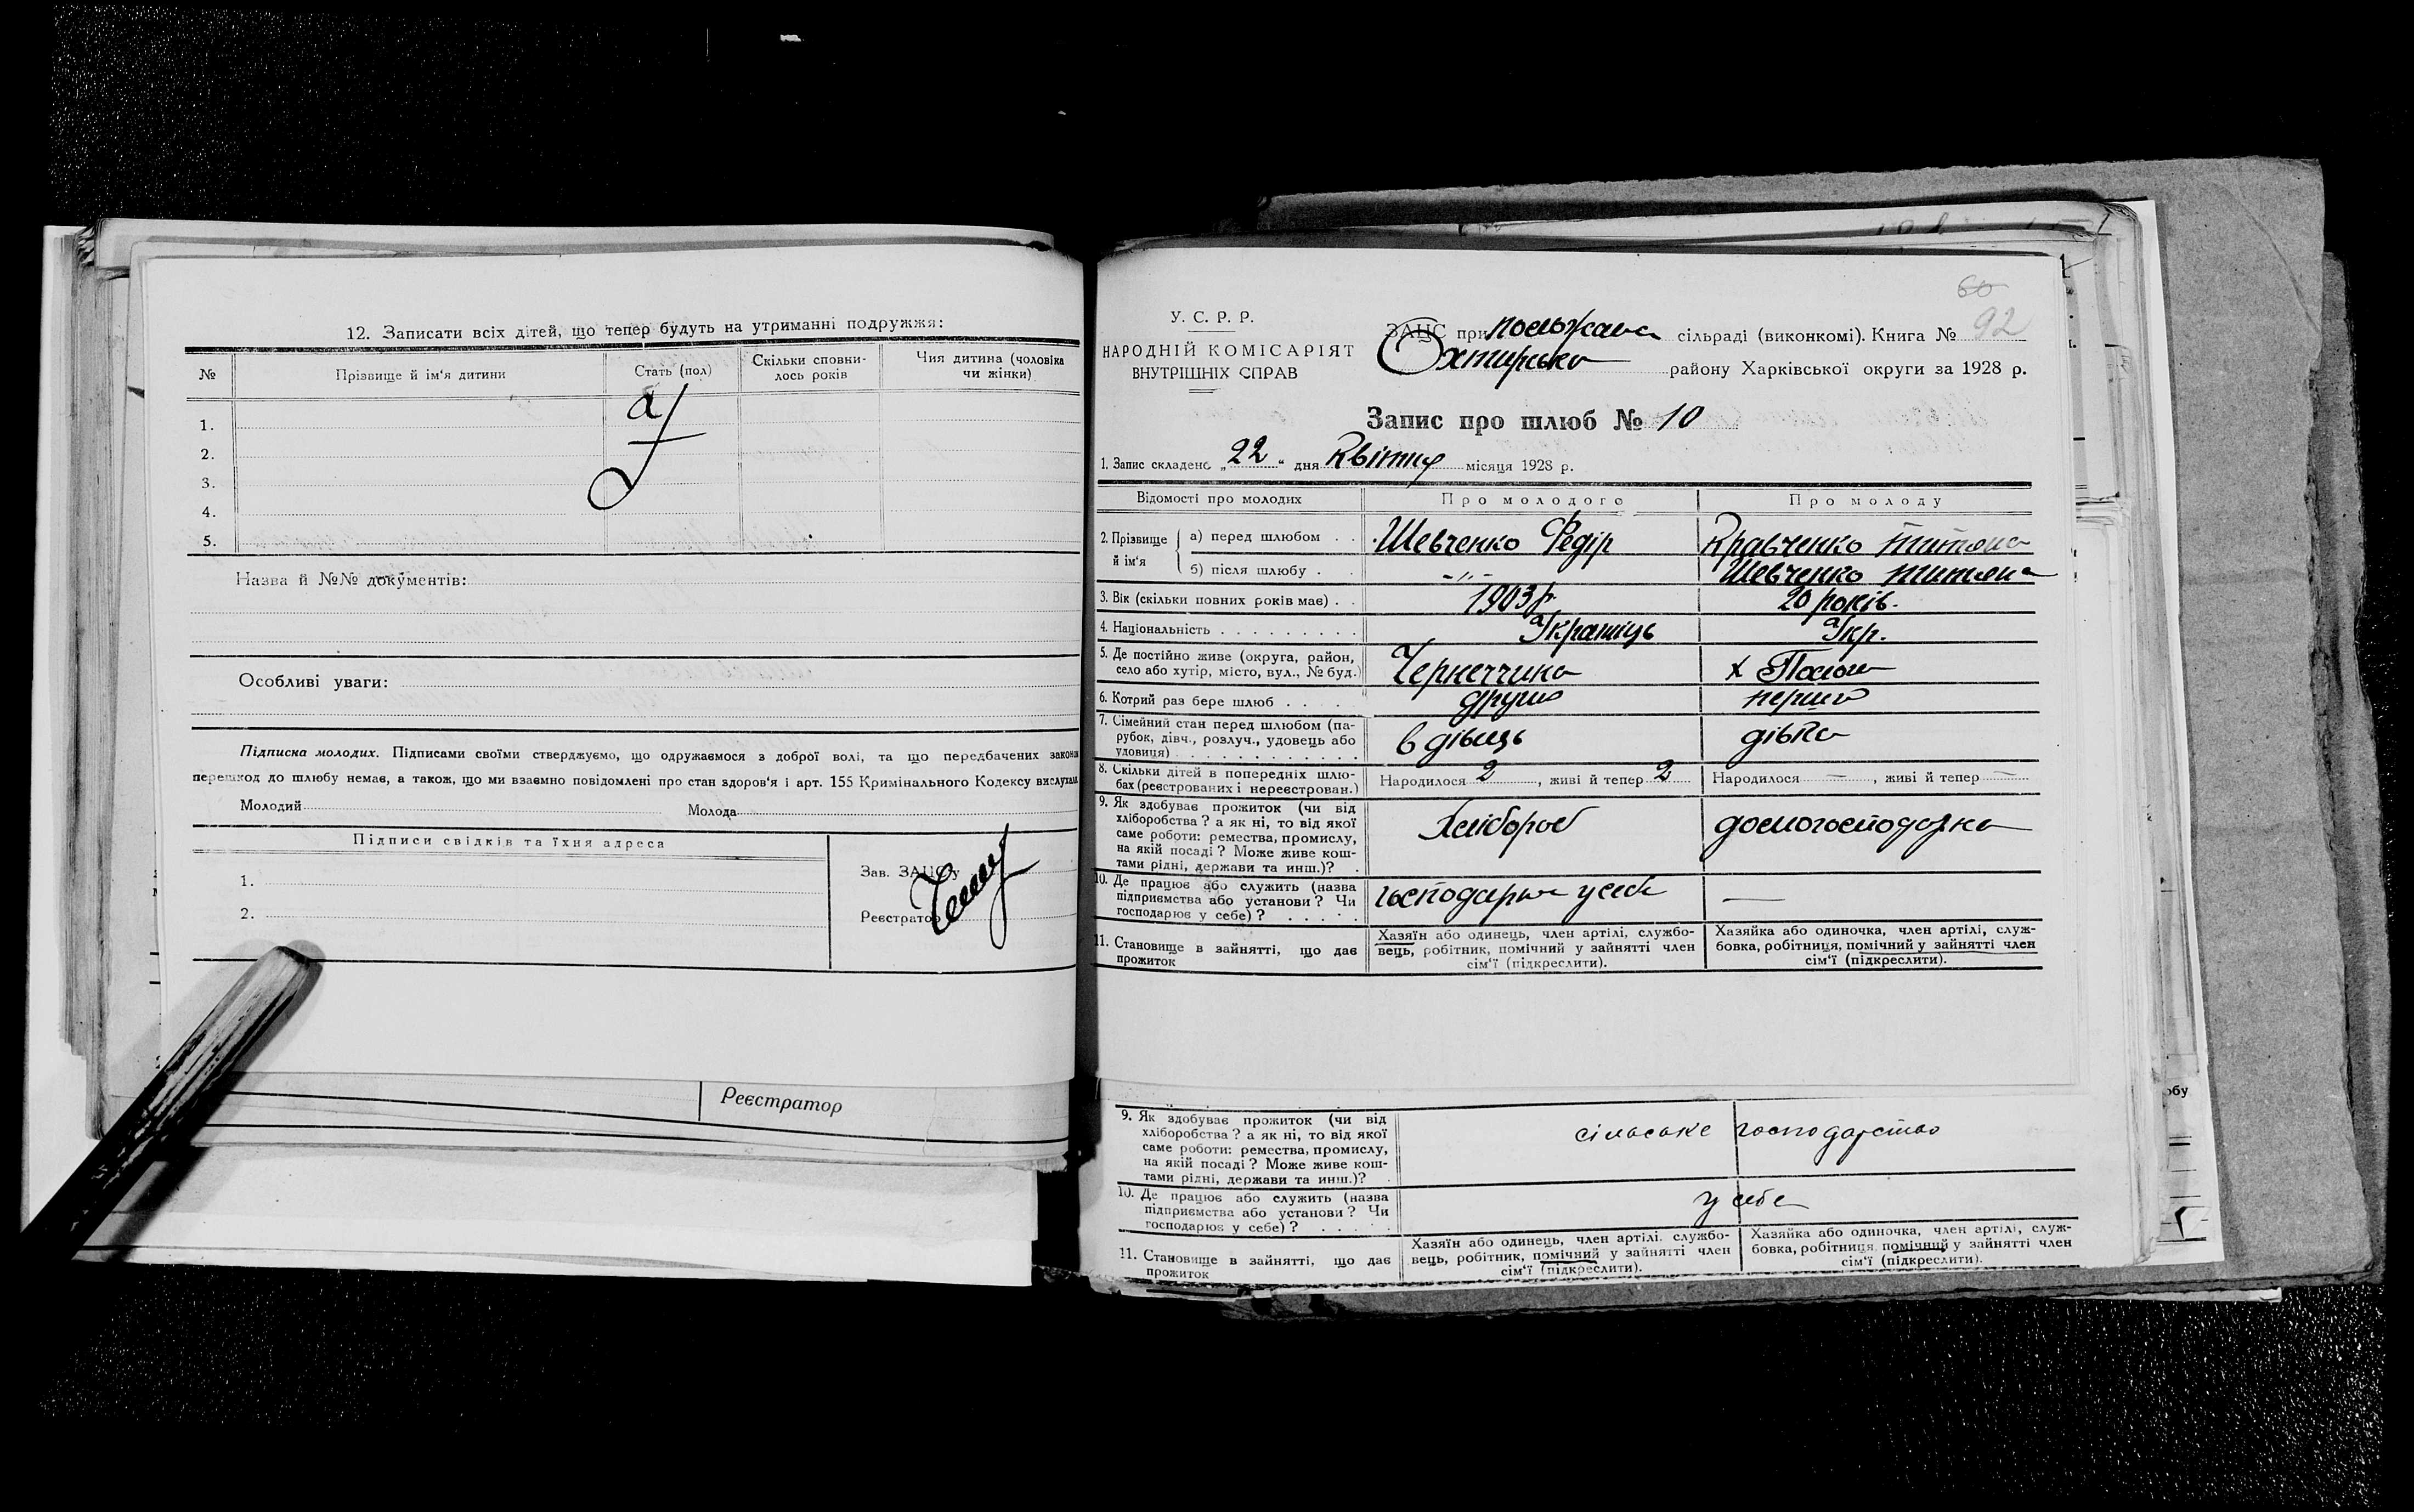 12. Записати всіх дітей, що тепер будуть на утриманні подружжя:
№ Прізвище й ім'я дитини Стать (пол) Скільки сповни-лось років Чия дитина (чоловіка чи жінки)
1.
2.
3.
4.
5.
Назва й №№ документів:
Особливі уваги:
Підписка молодих. Підписами своїми стверджуємо, що одружаємося з доброї волі, та що передбачених законом
перешкод до шлюбу немає, а також, що ми взаємно повідомлені про стан здоров'я і арт. 155 Кримінального Кодексу вислухали
Молодий Молода
Підписи свідків та їхня адреса
1.
2.
Зав. ЗАЦСу
Реєстратор
Реєстратор
60
92
У. С. Р. Р.
НАРОДНІЙ КОМІСАРІЯТ
ВНУТРІШНІХ СПРАВ
ЗАЦС при сільраді (виконкомі). Книга №
Охтирсько району Харківської округи за 1928 р.
Запис про шлюб № 10
1. Запис складено „22" дня Квітня місяця 1928 р.
Відомості про молодих Про молодого Про молоду
2. Прізвище й ім'я а) перед шлюбом Шевченко Федір Кравченко Титяна
б) після шлюбу -„- Шевченко Титяна
3. Вік (скільки повних років має) 1903 р. 20 років.
4. Національність Українець Укр.
5. Де постійно живе (округа, район,
село або хутір, місто, вул., № буд.) Чернеччина х
6. Котрий раз бере шлюб другий перший
7. Сімейний стан перед шлюбом (па-
рубок, дівч., розлуч., удовець або
удовиця) вдівець дівка
8. Скільки дітей в попередніх шлю-
бах (реєстрованих і нереєстрован.) Народилося 2, живі й тепер 2 Народилося —, живі й тепер —
9. Як здобуває прожиток (чи від
хліборобства? а як ні, то від якої
саме роботи: ремества, промислу,
на якій посаді? Може живе кош-
тами рідні, держави та инш.)? Хлібороб домогосподарка
10. Де працює або служить (назва
підприємства або установи? Чи
господарює у себе)? господарює у себе —
11. Становище в зайнятті, що дає
прожиток
Хазяїн або одинець, член артілі, службо-
вець, робітник, помічний у зайнятті член
сім'ї (підкреслити).
Хазяйка або одиночка, член артілі, служ-
бовка, робітниця, помічний у зайнятті член
сім'ї (підкреслити).
9. Як здобуває прожиток (чи від
хліборобства? а як ні, то від якої
саме роботи: ремества, промислу,
на якій посаді? Може живе кош-
тами рідні, держави та инш.)? сільське господарство
10. Де працює або служить (назва
підприємства або установи? Чи
господарює у себе)? у себе
11. Становище в зайнятті, що дає
прожиток
Хазяїн або одинець, член артілі, службо-
вець, робітник, помічний у зайнятті член
сім'ї (підкреслити).
Хазяйка або одиночка, член артілі, служ-
бовка, робітниця, помічний у зайнятті член
сім'ї (підкреслити).
обу